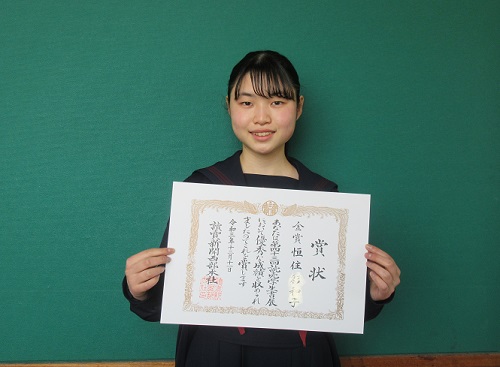 賞状
金賞 恒住
あなたは第四十回読売学生書展
において優秀な成績を収められ
ましたのでこれを賞します
令和五年十二月十一日
読売新聞西部本社